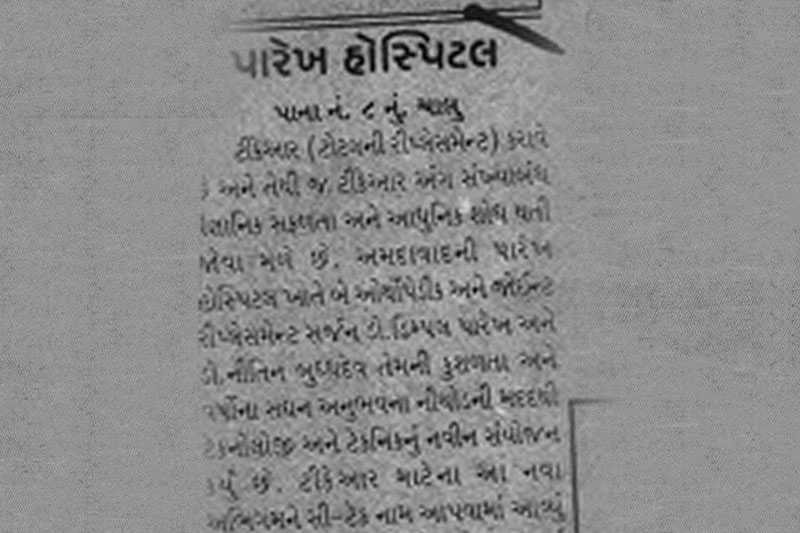 પારેખ હોસ્પિટલ
પાના નં. ૮ નું ચાલુ
ટીકેઆર (ટોટલની રીપ્લેસમેન્ટ) કરાવે
અને તેથી જ ટીકેઆર અંગ સંખ્યાબંધ
વૈજ્ઞાનિક સફળતા અને આધુનિક શોધ થતી
જોવા મળે છે. અમદાવાદની પારેખ
હોસ્પિટલ ખાતે બે ઓર્થોપેડીક અને જોઈન્ટ
રીપ્લેસમેન્ટ સર્જન ડો. ડિમ્પલ પારેખ અને
ડો. નીતિન બુધ્ધદેવ તેમની કુશળતા અને
વર્ષોના સઘન અનુભવના નીચોડની મદદથી
ટેકનોલોજી અને ટેકનિકનું નવીન સંયોજન
કર્યું છે. ટીકેઆર માટેના આ નવા
અભિગમને સી-ટેક નામ આપવામાં આવ્યું